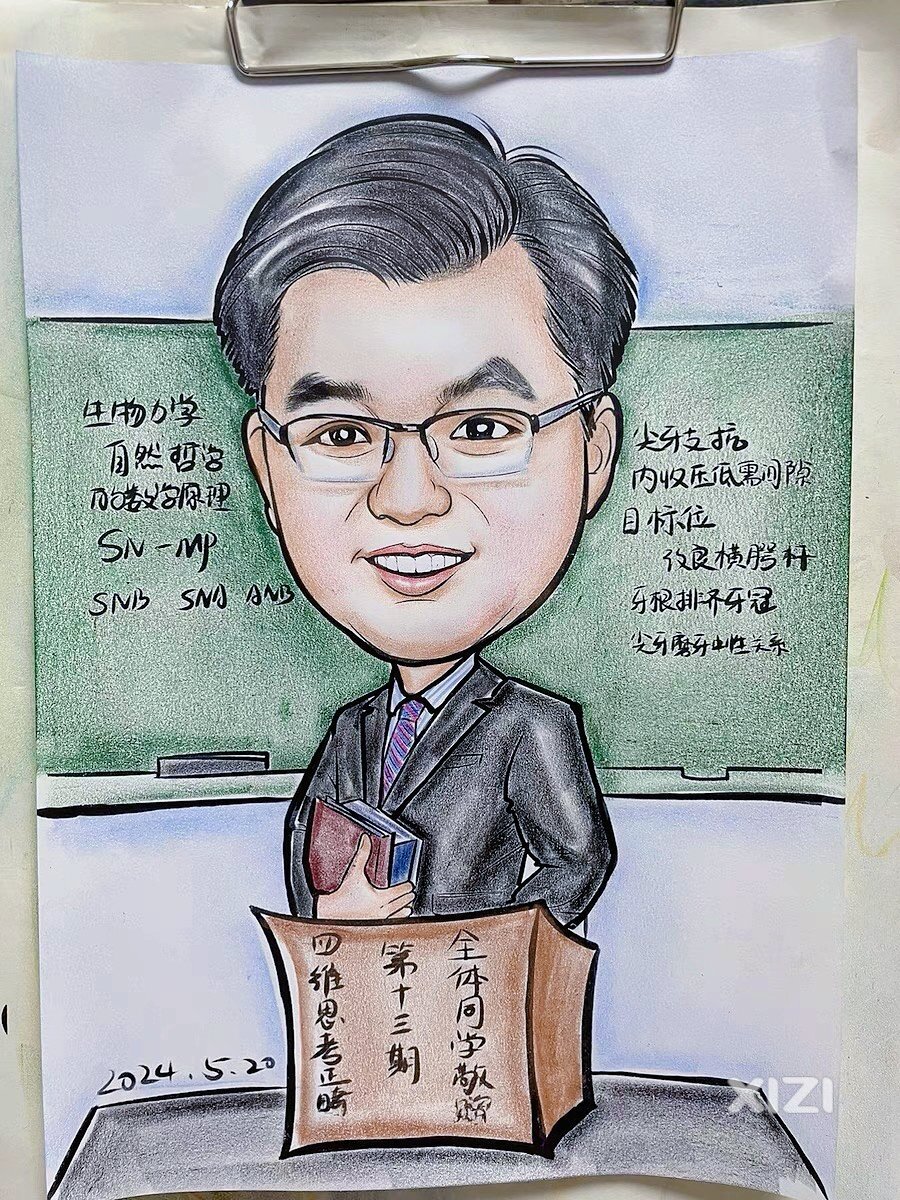 生物力学
自然哲学
的数学原理
SN-MP
SNB SNA ANB
尖牙支抗
内收压低需间隙
目标位
改良横腭杆
牙根排齐牙冠
尖牙磨牙中性关系
四维思考正畸
第十三期
全体同学敬赠
2024.5.20
XIZI